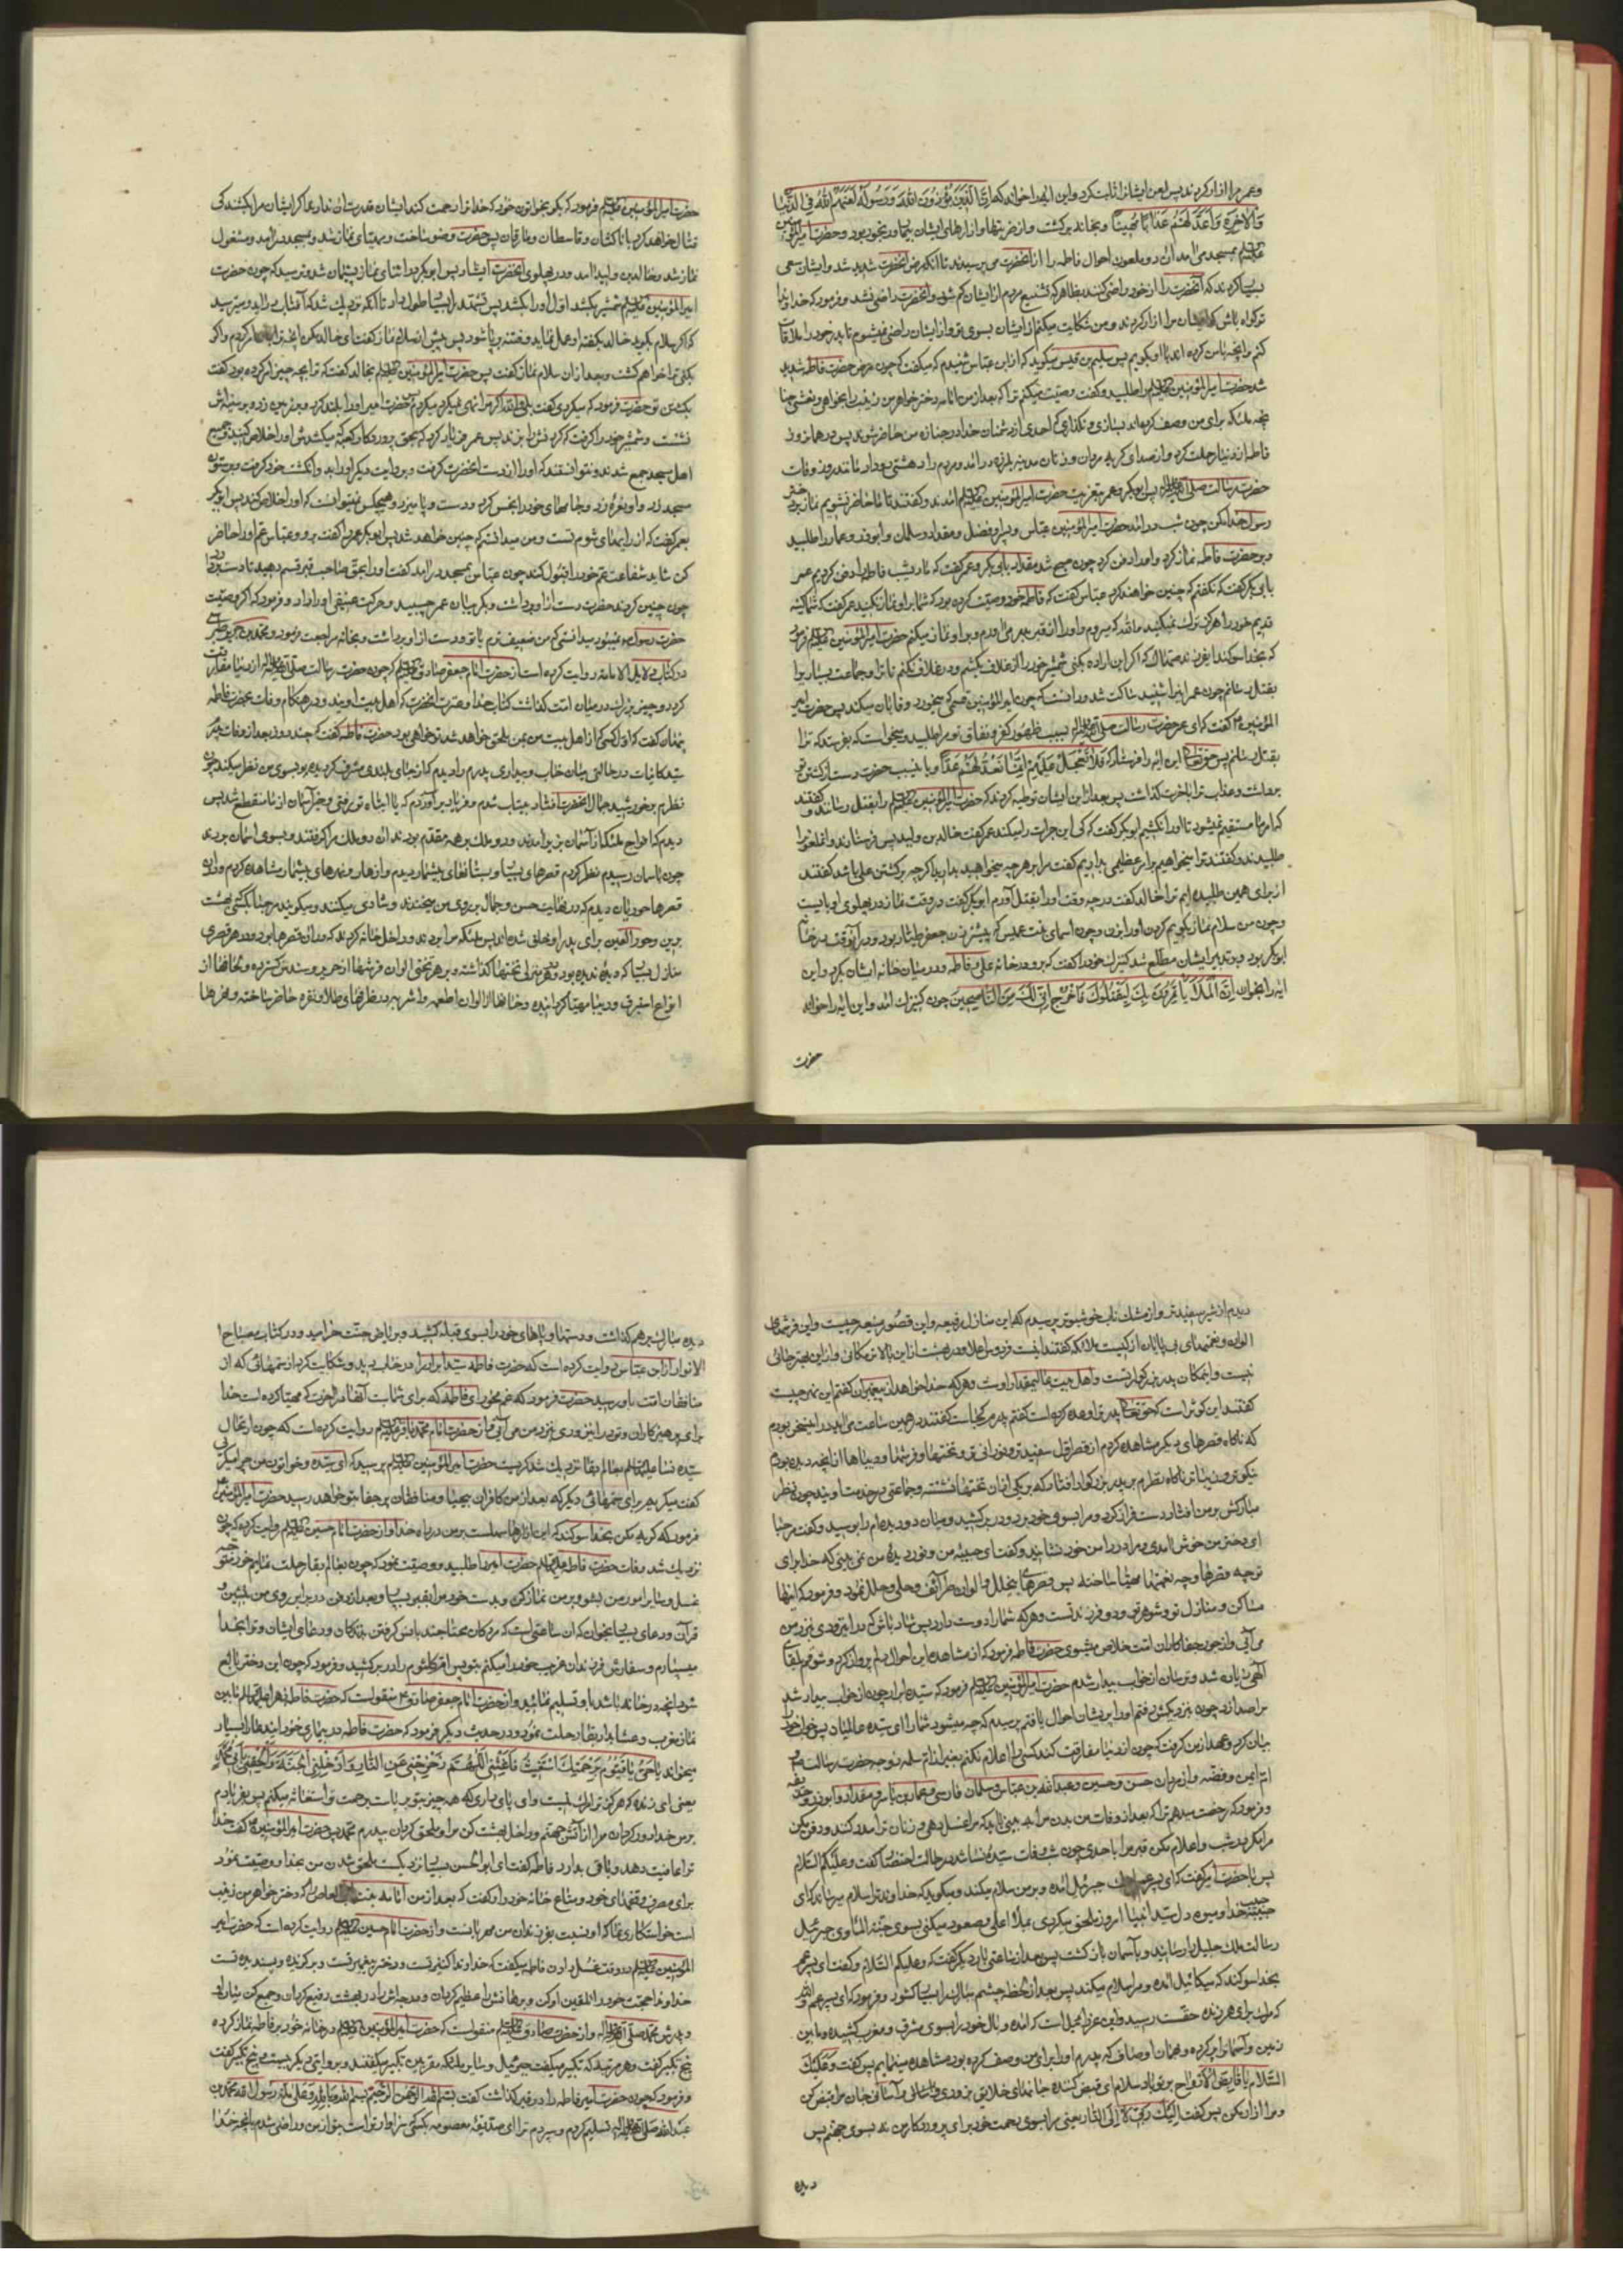 و عمر مرا آزار کردند پس لعن ایشان را ثابت کرد و این آیه را خواند که ان الذین یؤذون الله و رسوله لعنهم الله فی الدنیا
و الآخرة و اعد لهم عذابا مهینا و بخانه برگشت و از ضربتها و آزارهای ایشان بیمار و رنجور بود و حضرت امیر المؤمنین
بمسجد می آمد آن دو ملعون احوال فاطمه را از آنحضرت می پرسیدند تا آنکه مرض آنحضرت شدید شد و ایشان سعی
بسیار کردند که آنحضرت را از خود راضی کنند بظاهر که تشنیع مردم از ایشان کم شود و آنحضرت راضی نشد و فرمود که خداوندا
تو گواه باش که ایشان مرا آزار کردند و من شکایت میکنم از ایشان بسوی تو و از ایشان راضی نمیشوم تا پدر خود را ملاقات
کنم و آنچه با من کرده اند باو بگویم پس سلیم بن قیس میگوید که از ابن عباس شنیدم که میگفت که چون مرض حضرت فاطمه شدید
شد حضرت امیر المؤمنین را طلبید و گفت وصیت میکنم ترا که بعد از من امامه دختر خواهر من زینب را بخواهی و نعشی چنا
نچه ملئکه برای من وصف کرده اند بسازی و نگذاری که احدی از دشمنان خدا در جنازه من حاضر شوند پس در همان روز
فاطمه از دنیا رحلت کرد و از صدای گریه مردان و زنان مدینه بلرزه در آمد و مردم را دهشتی رو داد مانند روز وفات
حضرت رسالت صلی الله علیه و آله پس ابو بکر و عمر بتعزیت حضرت امیر المؤمنین آمدند و گفتند تا ما حاضر نشویم نماز بر دختر
رسول خدا مکن چون شب در آمد حضرت امیر المؤمنین عباس و پسر او فضل و مقداد و سلمان و ابو ذر و عمار را طلبید
و بر حضرت فاطمه نماز کرد و او را دفن کرد چون صبح شد مقداد بابی بکر و عمر گفت که ما دیشب فاطمه را دفن کردیم عمر
بابی بکر گفت که نگفتم که چنین خواهند کرد عباس گفت که فاطمه خود وصیت کرده بود که شما بر او نماز نکنید عمر گفت که شما کینه
قدیم خود را هرگز ترک نمیکنید و الله که میروم و او را از قبر بدر می آورم و بر او نماز میکنم حضرت امیر المؤمنین فرمود
که بخدا سوگند ای فرزند صهاک که اگر این اراده بکنی شمشیر خود را از غلاف بکشم و در غلاف نکنم تا ترا و جماعت بسیار را
بقتل رسانم چون عمر این را شنید ساکت شد و دانست که چون امیر المؤمنین قسمی که میخورد وفا بآن میکند پس حضرت امیر
المؤمنین گفت که ای عمر حضرت رسالت صلی الله علیه و آله بسبب ظهور کفر و نفاق تو مرا طلبید و میخواست که بفرستد که ترا
بقتل رسانم پس حق تعالی این آیه را فرستاد که فلا تعجل علیهم انما نعد لهم عدا و باین سبب حضرت دست از کشتن تو
برداشت و عذاب ترا باخرت گذاشت پس بعد از این ایشان توطیه کردند که حضرت امیر المؤمنین را بقتل رسانند و گفتند
که امر ما مستقیم نمیشود تا او را نکشیم ابو بکر گفت که کی این جرات را میکند عمر گفت خالد بن ولید پس فرستادند و آن ملعون را
طلبیدند و گفتند ترا میخواهیم برای امر عظیمی بداریم گفت مرا بر هر چه میخواهید بدارید اگر چه بر کشتن علی باشد گفتند
از برای همین طلبیده ایم ترا خالد گفت در چه وقت او را بقتل آورم ابو بکر گفت در وقت نماز در پهلوی او بایست
و چون من سلام نماز بگویم گردن او را بزن و چون اسمای بنت عمیس که پیشتر زن جعفر طیار بود و در آنوقت در خانه
ابو بکر بود و بر تدبیر ایشان مطلع شد کنیزک خود را گفت که برو در خانه علی و فاطمه و در میان خانه ایشان بگرد و این
آیه را بخوان ان الملأ یأتمرون بک لیقتلوک فاخرج انی لک من الناصحین چون کنیزک آمد و این آیه را خواند
حضرت
حضرت امیر المؤمنین فرمود که بگو بخاتون خود که خدا ترا رحمت کند ایشان قدرت آن ندارند اگر ایشان مرا بکشند کی
قتال خواهد کرد با ناکثان و قاسطان و مارقان پس حضرت وضو ساخت و مهیای نماز شد و بمسجد در آمد و مشغول
نماز شد و خالد بن ولید آمد و در پهلوی آنحضرت ایستاد پس ابو بکر در اثنای نماز پشیمان شد و ترسید که چون حضرت
امیر المؤمنین شمشیر بکشد اول او را بکشد پس تشهد را بسیار طول داد تا آنکه نزدیک شد که آفتاب برآید و میترسید
که اگر سلام بگوید خالد بگفته او عمل نماید و فتنه بر پا شود پس پیش از سلام نماز گفت ای خالد مکن آنچه ترا امر کردم و اگر
بکنی ترا خواهم کشت و بعد از آن سلام نماز گفت پس حضرت امیر المؤمنین بخالد گفت که ترا بچه چیز امر کرده بود گفت
بکشتن تو حضرت فرمود که میکردی گفت بلی و الله اگر مرا نهی نمیکرد میکردم پس حضرت امیر او را بلند کرد و بر زمین زد و بر سینه اش
نشست و شمشیر خود را گرفت که گردنش را بزند پس عمر فریاد کرد که بحق پروردگار کعبه میکشدش او را خلاص کنید و جمیع
اهل مسجد جمع شدند و نتوانستند که او را از دست آنحضرت گرفت و بروایت دیگر او را بدو انگشت خود گرفت و بر ستون
مسجد زد و او نعره زد و جامهای خود را نجس کرد و دست و پا میزد و هیچکس نمیتوانست که او را خلاص کند پس ابو بکر
بعمر گفت که از رایهای شوم تست و من میدانستم که چنین خواهد شد پس ابو بکر عمر را گفت برو و عباس عم او را حاضر
کن شاید شفاعت عم خود را قبول کند چون عباس بمسجد در آمد گفت او را بحق صاحب قبر قسم دهید تا دست بردارد
چون چنین کردند حضرت دست از او برداشت و بگریبان عمر چسبید و حرکت عنیفی او را داد و فرمود که اگر وصیت
حضرت رسول ص نمیبود میدانستی که من ضعیف ترم یا تو و دست از او برداشت و بخانه مراجعت فرمود و محمد بن جریر طبری
در کتاب دلایل الامامه روایت کرده است از حضرت امام جعفر صادق که چون حضرت رسالت صلی الله علیه و آله از دنیا مفارقت
کرد دو چیز بزرگ در میان امت گذاشت کتاب خدا و عترت آنحضرت که اهل بیت اویند و در هنگام وفات بحضرت فاطمه
پنهان گفت که اول کسی که از اهل بیت من بمن ملحق خواهد شد تو خواهی بود حضرت فاطمه گفت که چند روز بعد از وفات پدر
سید کاینات در حالتی میان خواب و بیداری پدرم را دیدم که از جای بلندی مشرف گردیده بود بسوی من نظر میکند چون
نظرم بر خورشید جمال آنحضرت افتاد بیتاب شدم و فریاد بر آوردم که یا ابتاه تو رفتی و خبر آسمان از ما منقطع شد پس
دیدم که افواج ملئکه از آسمان بزیر آمدند و دو ملک بر همه مقدم بودند آن دو ملک مرا گرفتند و بسوی آسمان بردند
چون بآسمان رسیدم نظر کردم قصرهای بسیار و بستانهای بیشمار دیدم و انهار و نهرهای بیشمار مشاهده کردم و در آن
قصرها حوریان دیدم که در نهایت حسن و جمال بر روی من میخندند و شادی میکنند و میگویند مرحبا بکسی که بهشت
برین و حور العین برای پدر او خلق شده اند پس ملئکه مرا بردند و داخل خانه کردند که در آن قصرها بود و در هر قصری
منازل بسیار که دیده ندیده بود و در هر منزلی تختها گذاشته و بر هر تختی الوان فرشها از حریر و سندس گسترده و لحافها از
انواع استبرق و دیبا مهیا گردانیده و خوانها از الوان اطعمه و اشربه در ظرفهای طلا و نقره حاضر ساخته و نهرها
دیدم از شیر سفیدتر و از مشک ناب خوشبوتر پرسیدم که این منازل رفیعه و این قصور منیعه چیست و این فرشهای
الوان و نعمتهای بی پایان از کیست ملائکه گفتند اینست فردوس اعلا و در بهشت از این بالاتر مکانی و از این بهتر جائی
نیست و این مکان پدر بزرگوار تست و اهل بیت عالیمقدار اوست و هر که خدا خواهد از پیغمبران گفتم این نهر چیست
گفتند این کوثر است که حق تعالی پدر ترا وعده کرده است گفتم پدرم کجاست گفتند در همین ساعت می آید در این سخن بودم
که ناگاه قصرهای دیگر مشاهده کردم از قصر اول سفیدتر و نورانی تر و تختها و فرشها و دیباها از آنچه دیده بودم
نیکوتر و زیباتر ناگاه نظرم بر پدر بزرگوار افتاد که بر یکی از آن تختها نشسته و جماعتی در خدمت اویند چون نظر
مبارکش بر من افتاد دست فراز کرد و مرا بسوی خود برد و در بر کشید و میان دو دیده ام را بوسید و گفت مرحبا
ای دختر من خوش آمدی و مرا در دامن خود نشانید و گفت ای حبیبه من و نور دیده من نمی بینی که خدا برای
تو چه قصرها و چه نعمتها مهیا ساخته پس قصرهای مجلل و الوان طرائف و حلی و حلل نمود و فرمود که اینها
مساکن و منازل تو و شوهر تو و دو فرزند تست و هر که شما را دوست دارد پس شاد باش که در این زودی بنزد من
می آئی و از جور جفاکاران امت خلاص میشوی حضرت فاطمه فرمود که از مشاهده این احوال دلم پرواز کرد و شوقم بلقای
الهی زیاده شد و ترسان از خواب بیدار شدم حضرت امیر المؤمنین فرمود که سیده زنان چون از خواب بیدار شد
مرا صدا زد چون بنزدیکش رفتم او را پریشان احوال یافتم پرسیدم که چه میشود شما را ای سیده عالمیان پس خواب خود را
بیان کرد و عهد از من گرفت که چون از دنیا مفارقت کند کسی را اعلام نکنم بغیر از ام سلمه زوجه حضرت رسالت و
ام ایمن و فضه و از مردان حسن و حسین و عبد الله بن عباس و سلمان فارسی و عمار بن یاسر و مقداد و ابو ذر و حذیفه
و فرمود که رخصت میدهم ترا که بعد از وفات من بدن مرا به بینی تا آنکه مرا غسل دهی و زنان ترا مدد کنند و دفن مکن
مرا مگر در شب و اعلام مکن قبر مرا با حدی چون شب وفات سیده نسا شد در حالت احتضار گفت و علیکم السلام
پس با حضرت امیر گفت که ای پسر عم اینک جبرئیل آمده و بر من سلام میکند و میگوید که خداوند ترا سلام میرساند که ای
حبیبه حبیب خدا و میوه دل سید انبیا امروز ملحق میگردی بملأ اعلی و صعود میکنی بسوی جنة المأوی جبرئیل
رسالت ملک جلیل را رسانید و بآسمان بازگشت پس بعد از ساعتی بار دیگر گفت که و علیکم السلام و گفت ای پسر عم
بخدا سوگند که میکائیل آمده و مرا سلام میکند پس بعد از لحظه چشم مبارک را بسیار گشود و فرمود که ای پسر عم و الله
که مرگ برای هر زنده حقست رسید و این عزرائیل است که آمده و بال خود را بسوی مشرق و مغرب کشیده و مابین
زمین و آسمان را پر کرده و بهمان اوصاف که پدرم او را برای من وصف کرده بود مشاهده مینمایم پس گفت و علیک
السلام یا قابض الارواح بر تو باد سلام ای قبض کننده جانهای خلایق بزودی و بآسانی جان مرا قبض کن
و مرا آزار مکن پس گفت الیک ربی لا الی النار یعنی مرا بسوی رحمت خود برای پروردگار من نه بسوی جهنم پس
دیده
دیده مبارک برهم گذاشت و دستها و پاهای خود را بسوی قبله کشید و بریاض جنت خرامید و در کتاب مصباح
الانوار از ابن عباس روایت کرده است که حضرت فاطمه سید ابرار را در خواب دید و شکایت کرد از ستمهائی که از
منافقان امت باو رسید حضرت فرمود که غم مخور ای فاطمه که برای شما است آنها در آخرت که مهیا کرده است خدا
برای پرهیزکاران و تو در این زودی بنزد من می آئی و از حضرت امام محمد باقر روایت کرده است که چون ارتحال
سیده نسا بعالم بقا نزدیک شد گریست حضرت امیر المؤمنین پرسید که ای سیده و خاتون من چرا میگریی
گفت میگریم برای ستمهائی دیگر که بعد از من کافران بیحیا و منافقان پر جفا بتو خواهد رسید حضرت امیر المؤمنین
فرمود که گریه مکن بخدا سوگند که این آزارها سهلست بر من در راه خدا و از حضرت امام حسین روایت کرده که چون
نزدیک شد وفات حضرت فاطمه حضرت امیر را طلبید و وصیت نمود که چون بعالم بقا رحلت نمایم خود متوجه
غسل و سایر امور من بشو و بر من نماز کن و بدست خود مرا بقبر بسپار و بعد از دفن در برابر روی من بنشین و
قرآن و دعای بسیار بخوان که آن ساعتی است که مردگان محتاجند بانس گرفتن بزندگان و دعای ایشان و ترا بخدا
میسپارم و سفارش فرزندان غریب خود را میکنم بتو پس ام کلثوم را در بر کشید و فرمود که چون این دختر بالغ
شود آنچه در خانه باشد باو تسلیم نمائید و از حضرت امام جعفر صادق منقول است که حضرت فاطمه زهرا مابین
نماز مغرب و عشا بدار بقا رحلت نمود و در حدیث دیگر فرمود که حضرت فاطمه در بیماری خود این دعا را بسیار
میخواند یا حی یا قیوم برحمتک استغیث فاغثنی اللهم زحزحنی عن النار و ادخلنی الجنة و الحقنی بابی محمد
یعنی ای زنده که هرگز ترا مرگ نیست و ای پای داری که همه چیز بتو بر پاست برحمت تو استغاثه میکنم پس بفریادم
برس خداوندا دور گردان مرا از آتش جهنم و داخل بهشت کن مرا و ملحق گردان به پدرم محمد پس حضرت امیر المؤمنین گفت خدا
ترا عافیت دهد و باقی بدارد فاطمه گفت ای ابو الحسن بسیار نزدیک است ملحق شدن من بخدا و وصیت نمود
برای مصرف وقفهای خود و متاع خانه خود و گفت که بعد از من امامه بنت ابی العاص را که دختر خواهر من زینب
است خواستگاری نما که او نسبت بفرزندان من مهربانست و از حضرت امام حسین روایت کرده است که حضرت امیر
المؤمنین در وقت غسل دادن فاطمه میگفت که خداوندا کنیز تست و دختر پیغمبر تست و برگزیده و پسندیده تست
خداوندا حجت خود را تلقین او کن و برهانش را عظیم گردان و درجه اش را در بهشت رفیع گردان و جمع کن میان او
و پدرش محمد صلی الله علیه و آله و از حضرت صادق منقول است که حضرت امیر المؤمنین در خانه خود بر فاطمه نماز کرده
پنج تکبیر گفت و هر مرتبه که تکبیر میگفت جبرئیل و سایر ملئکه مقربین تکبیر میگفتند و بروایتی دیگر بیست و پنج تکبیر گفت
و فرمود که چون حضرت امیر فاطمه را در قبر گذاشت گفت بسم الله الرحمن الرحیم بسم الله و بالله و علی ملة رسول الله محمد بن
عبد الله صلی الله علیه و آله تسلیم کردم و سپردم ترا ای صدیقه معصومه بکسی که سزاوارتر است بتو از من و راضی شدم بآنچه خدا